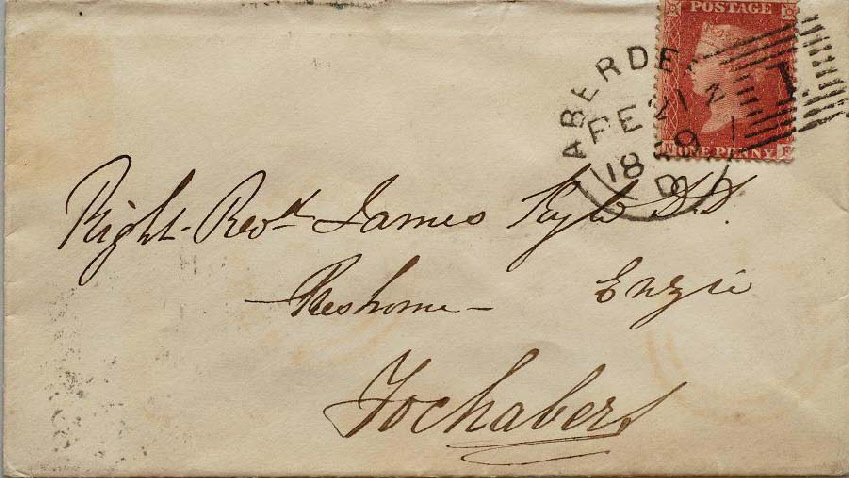 POSTAGE
ONE PENNY
ABERDE
FE 21
18 9
D
1
Right Revd. James Kyle D.D.
Preshome - Enzie
Fochabers